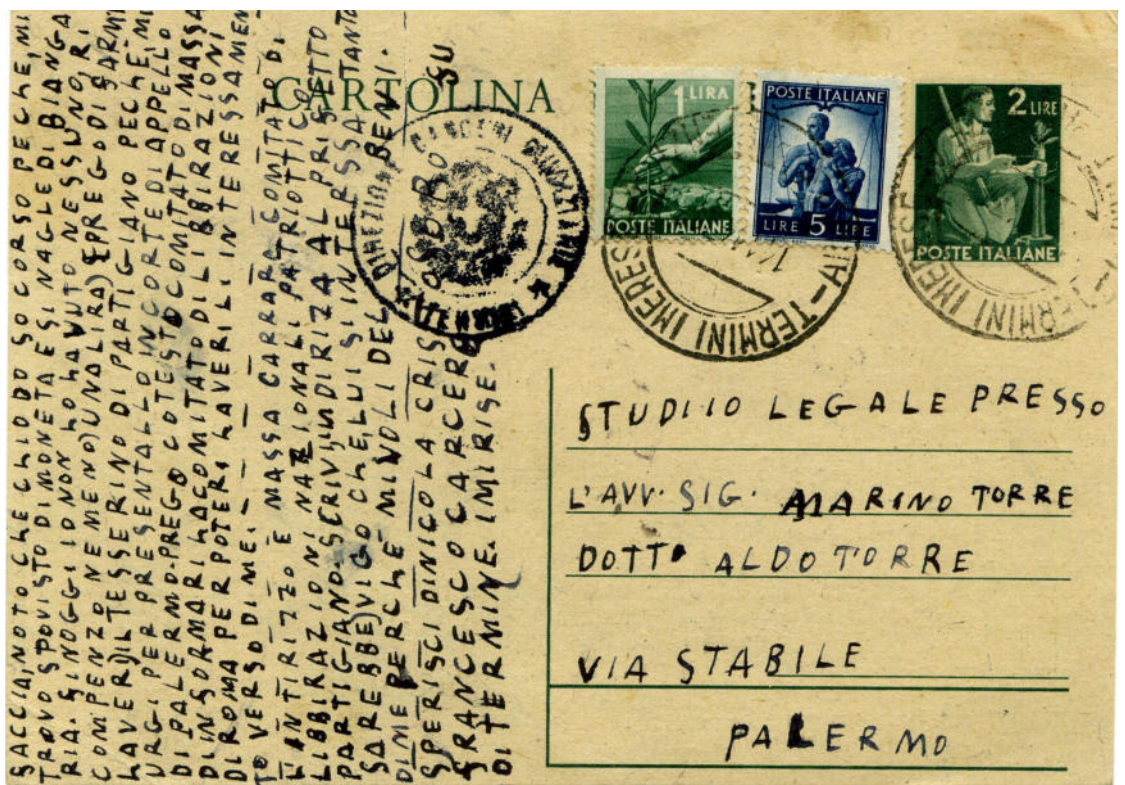 CARTOLINA
1 LIRA
POSTE ITALIANE
POSTE ITALIANE
LIRE 5 LIRE
2 LIRE
POSTE ITALIANE
TERMINI IMERESE
TERMINI IMERESE
STUDIIO LEGALE PRESSO
L'AVV. SIG. MARINO TORRE
DOTT. ALDO TORRE
VIA STABILE
PALERMO
SACCIA, NOTO CHE CHIO DO SO CORSO PECHE, MI
TROVO SPOVISTO DI MONETA E SI NAGLE DI BIANGA
RIA. SINOGGI IO NON HO HAVUTO NESSUNO, RI
COMPENZO (NE MENO) UNA LIRA) (PREGO DI SARMI
HAVER) IL TESSERINO DI PARTIGIANO PECHE MI
URGI PER PRESENTALLO IN CORTE DI APPELLO
DI PALERMO. PREGO COTESTO COMITATO DI MASSA
DI INSORMARI HAGOMITATO DI LIBBIRAZIONI
DI ROMA PER POTERI HAVERILI INTERESSAMEN
TO VERSO DI ME.
L'INTIRIZZO È MASSA CARRARA COMITATO DI
LIBBIRAZIONI NAZIONALI PATRIOTTICO
PARTIGIANO. SCRIVI, INDIRIZA AL PRISETTO
SAREBBE) VIGO CHE, LUI SINTERSSA TANTO
DI ME PERCHÈ MI VOLI DEL BENI.
SPERISCI DI NICOLA CRIS
SRANCESCO CARCERE
DI TERMINE. IMIRISE.
SU